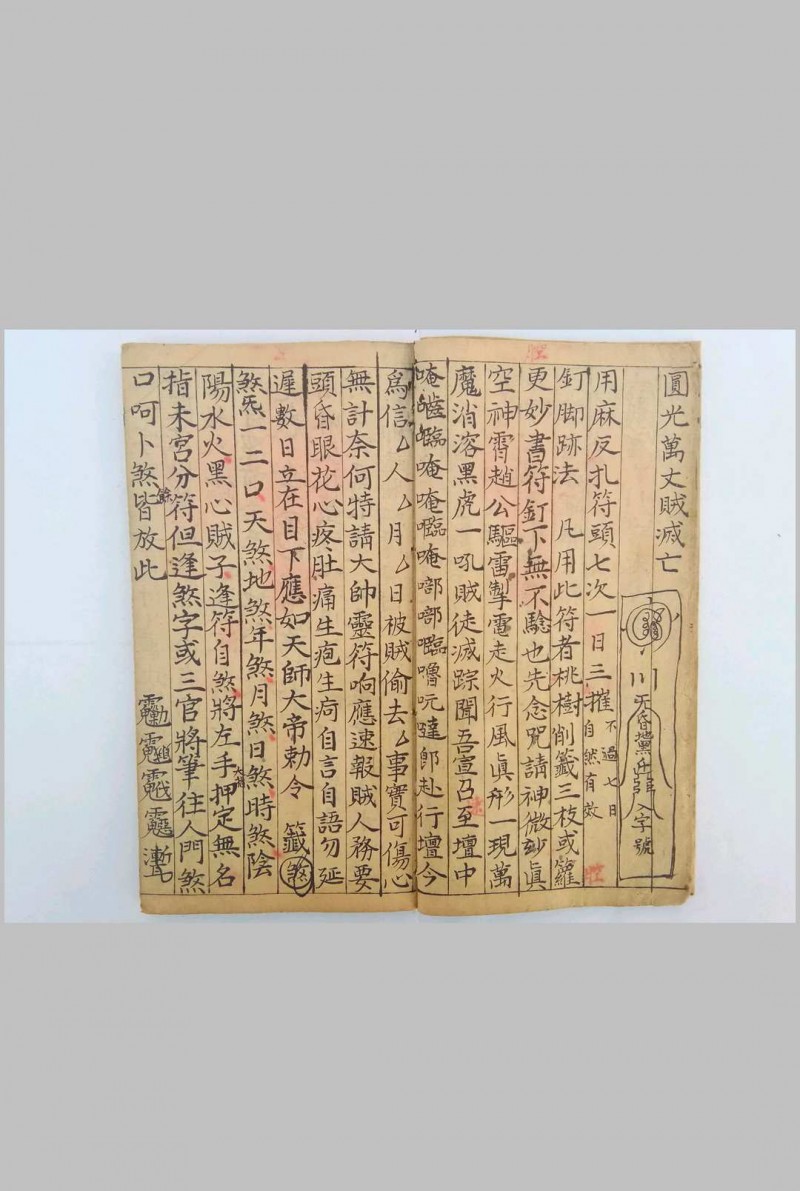 圓光萬丈賊滅亡
入字號
用麻反扎符頭七次一日三摧不過七日自然有效
釘脚跡法 凡用此符者桃樹削籤三枝或籮
更妙書符釘下無不驗也先念咒請神微玅眞
空神霄趙公驅雷掣電走火行風眞形一現萬
魔消溶黑虎一吼賊徒滅踪聞吾宣召至壇中
唵 唵唵 唵啷啷 嚕吭噠郎赴行壇今
爲信厶人厶月厶日被賊偷去厶事實可傷心
無計奈何特請大帥靈符响應速報賊人務要
頭昏眼花心疼肚痛生疱生疴自言自語勿延
遲數日立在目下應如天師大帝勅令 籤煞
煞炁一二口天煞地煞年煞月煞日煞時煞陰
陽水火黑心賊子逢符自煞將左手押定無名
指未宮分符但逢煞字或三官將筆往人門煞
口呵卜煞皆放此